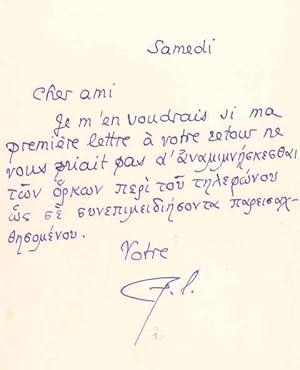 Samedi
Cher ami
Je m'en voudrais si ma
première lettre à votre retour ne
vous priait pas d'ἀναμιμνήσκεσθαι
τῶν ὅρκων περὶ τοῦ τηλεφώνου
ὡς σὲ συνεπιμειδιήσοντα παρεισαχ-
θησομένου.
Votre